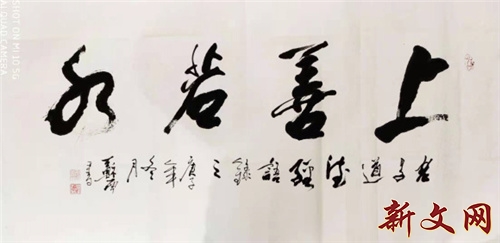 上善若水
老子道德經語錄之庚子年冬月
新文网
SHOT ON MI10 5G
AI QUAD CAMERA